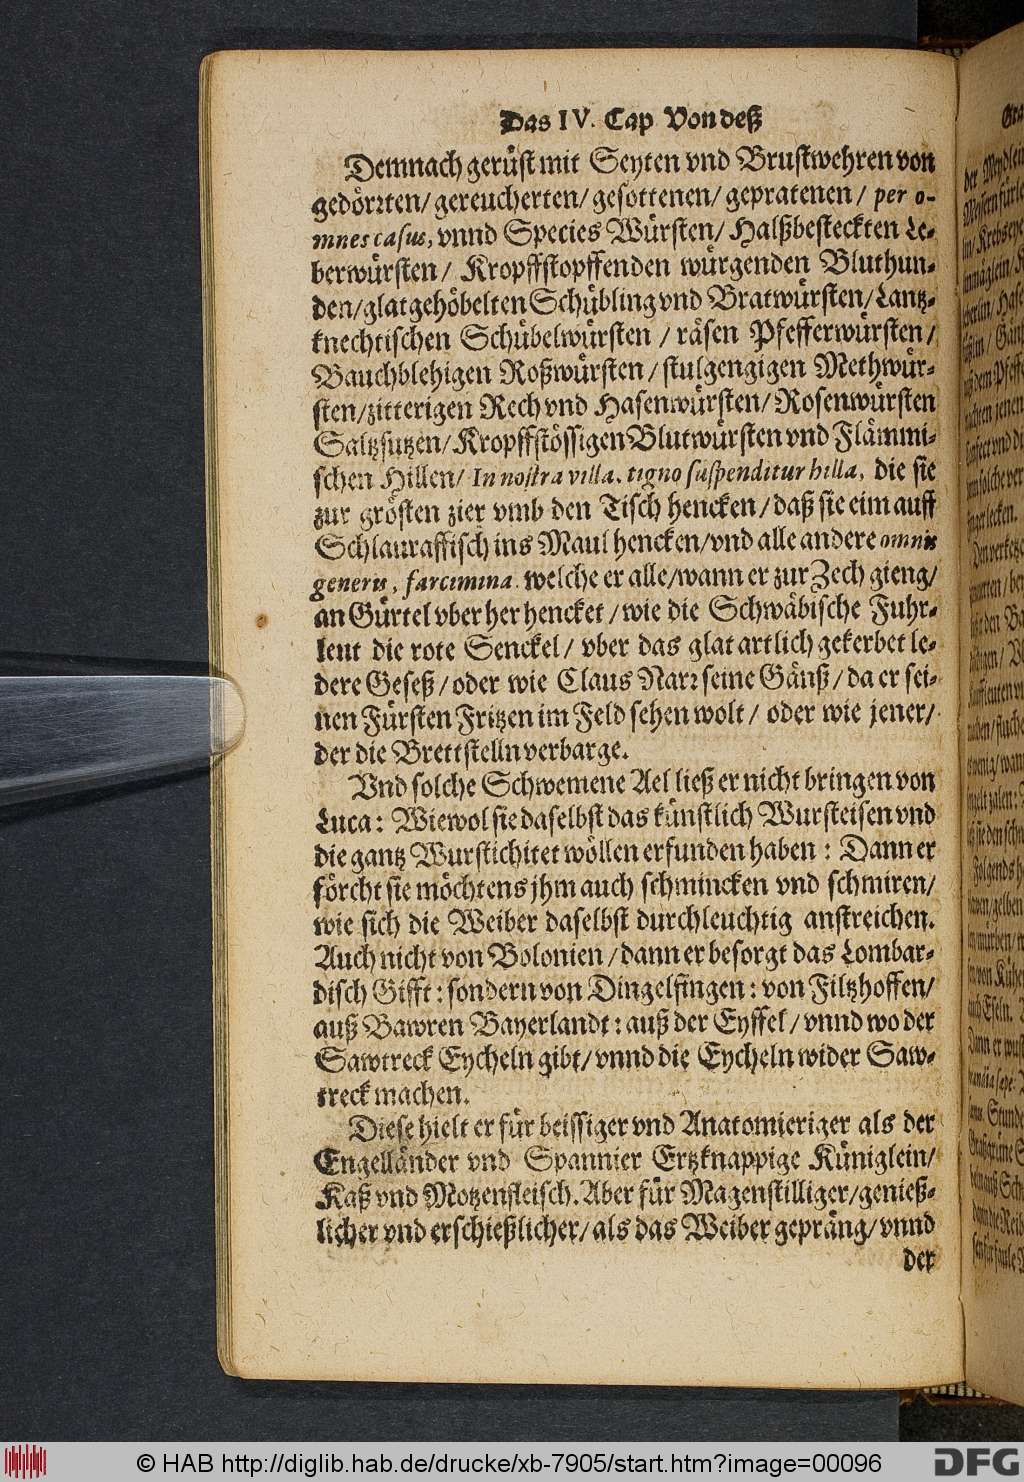 Das IV. Cap Von deß
Demnach gerüst mit Seyten vnd Brustwehren von
gedörzten/ gereucherten/ gesottenen/ gepratenen/ per o-
mnes casus, vnnd Species Würsten/ Halßbesteckten Le-
berwürsten/ Kropffstopffenden würgenden Bluthun-
den/ glat gehöbelten Schübling vnd Bratwürsten/ Lantz-
knechtischen Schübelwürsten / räsen Pfefferwürsten/
Bauchblehigen Roßwürsten / stulgengigen Methwür-
sten/ zitterigen Rech vnd Hasenwürsten/ Rosenwürsten
Saltzsutzen/ Kropffstössigen Blutwürsten vnd Flämmi-
schen Hillen/ In nostra villa, tigno suspenditur hilla, die sie
zur grösten zier vmb den Tisch hencken/ daß sie eim auff
Schlauraffisch ins Maul hencken/ vnd alle andere omnis
generis, farcimina. welche er alle/ wann er zur Zech gieng/
an Gürtel vber her hencket / wie die Schwäbische Fuhr-
leut die rote Senckel/ vber das glat artlich gekerbet le-
dere Geseß/ oder wie Claus Narz seine Gänß/ da er sei-
nen Fürsten Fritzen im Feld sehen wolt / oder wie jener/
der die Brettstelln verbarge.
Vnd solche Schwemene Ael ließ er nicht bringen von
Luca: Wiewol sie daselbst das künstlich Wursteisen vnd
die gantz Wurstichitet wöllen erfunden haben : Dann er
förcht sie möchtens jhm auch schmincken vnd schmiren/
wie sich die Weiber daselbst durchleuchtig anstreichen.
Auch nicht von Bolonien / dann er besorgt das Lombar-
disch Gifft : sondern von Dingelfingen : von Filtzhoffen/
auß Bawren Bayerlandt : auß der Eyffel / vnnd wo der
Sawtreck Eycheln gibt/ vnnd die Eycheln wider Saw-
treck machen.
Diese hielt er für beissiger vnd Anatomieriger als der
Engelländer vnd Spannier Ertzknappige Küniglein/
Kaß vnd Motzenfleisch. Aber für Magenstilliger/ genieß-
licher vnd erschießlicher/ als das Weiber gepräng/ vnnd
der
© HAB http://diglib.hab.de/drucke/xb-7905/start.htm?image=00096
DFG